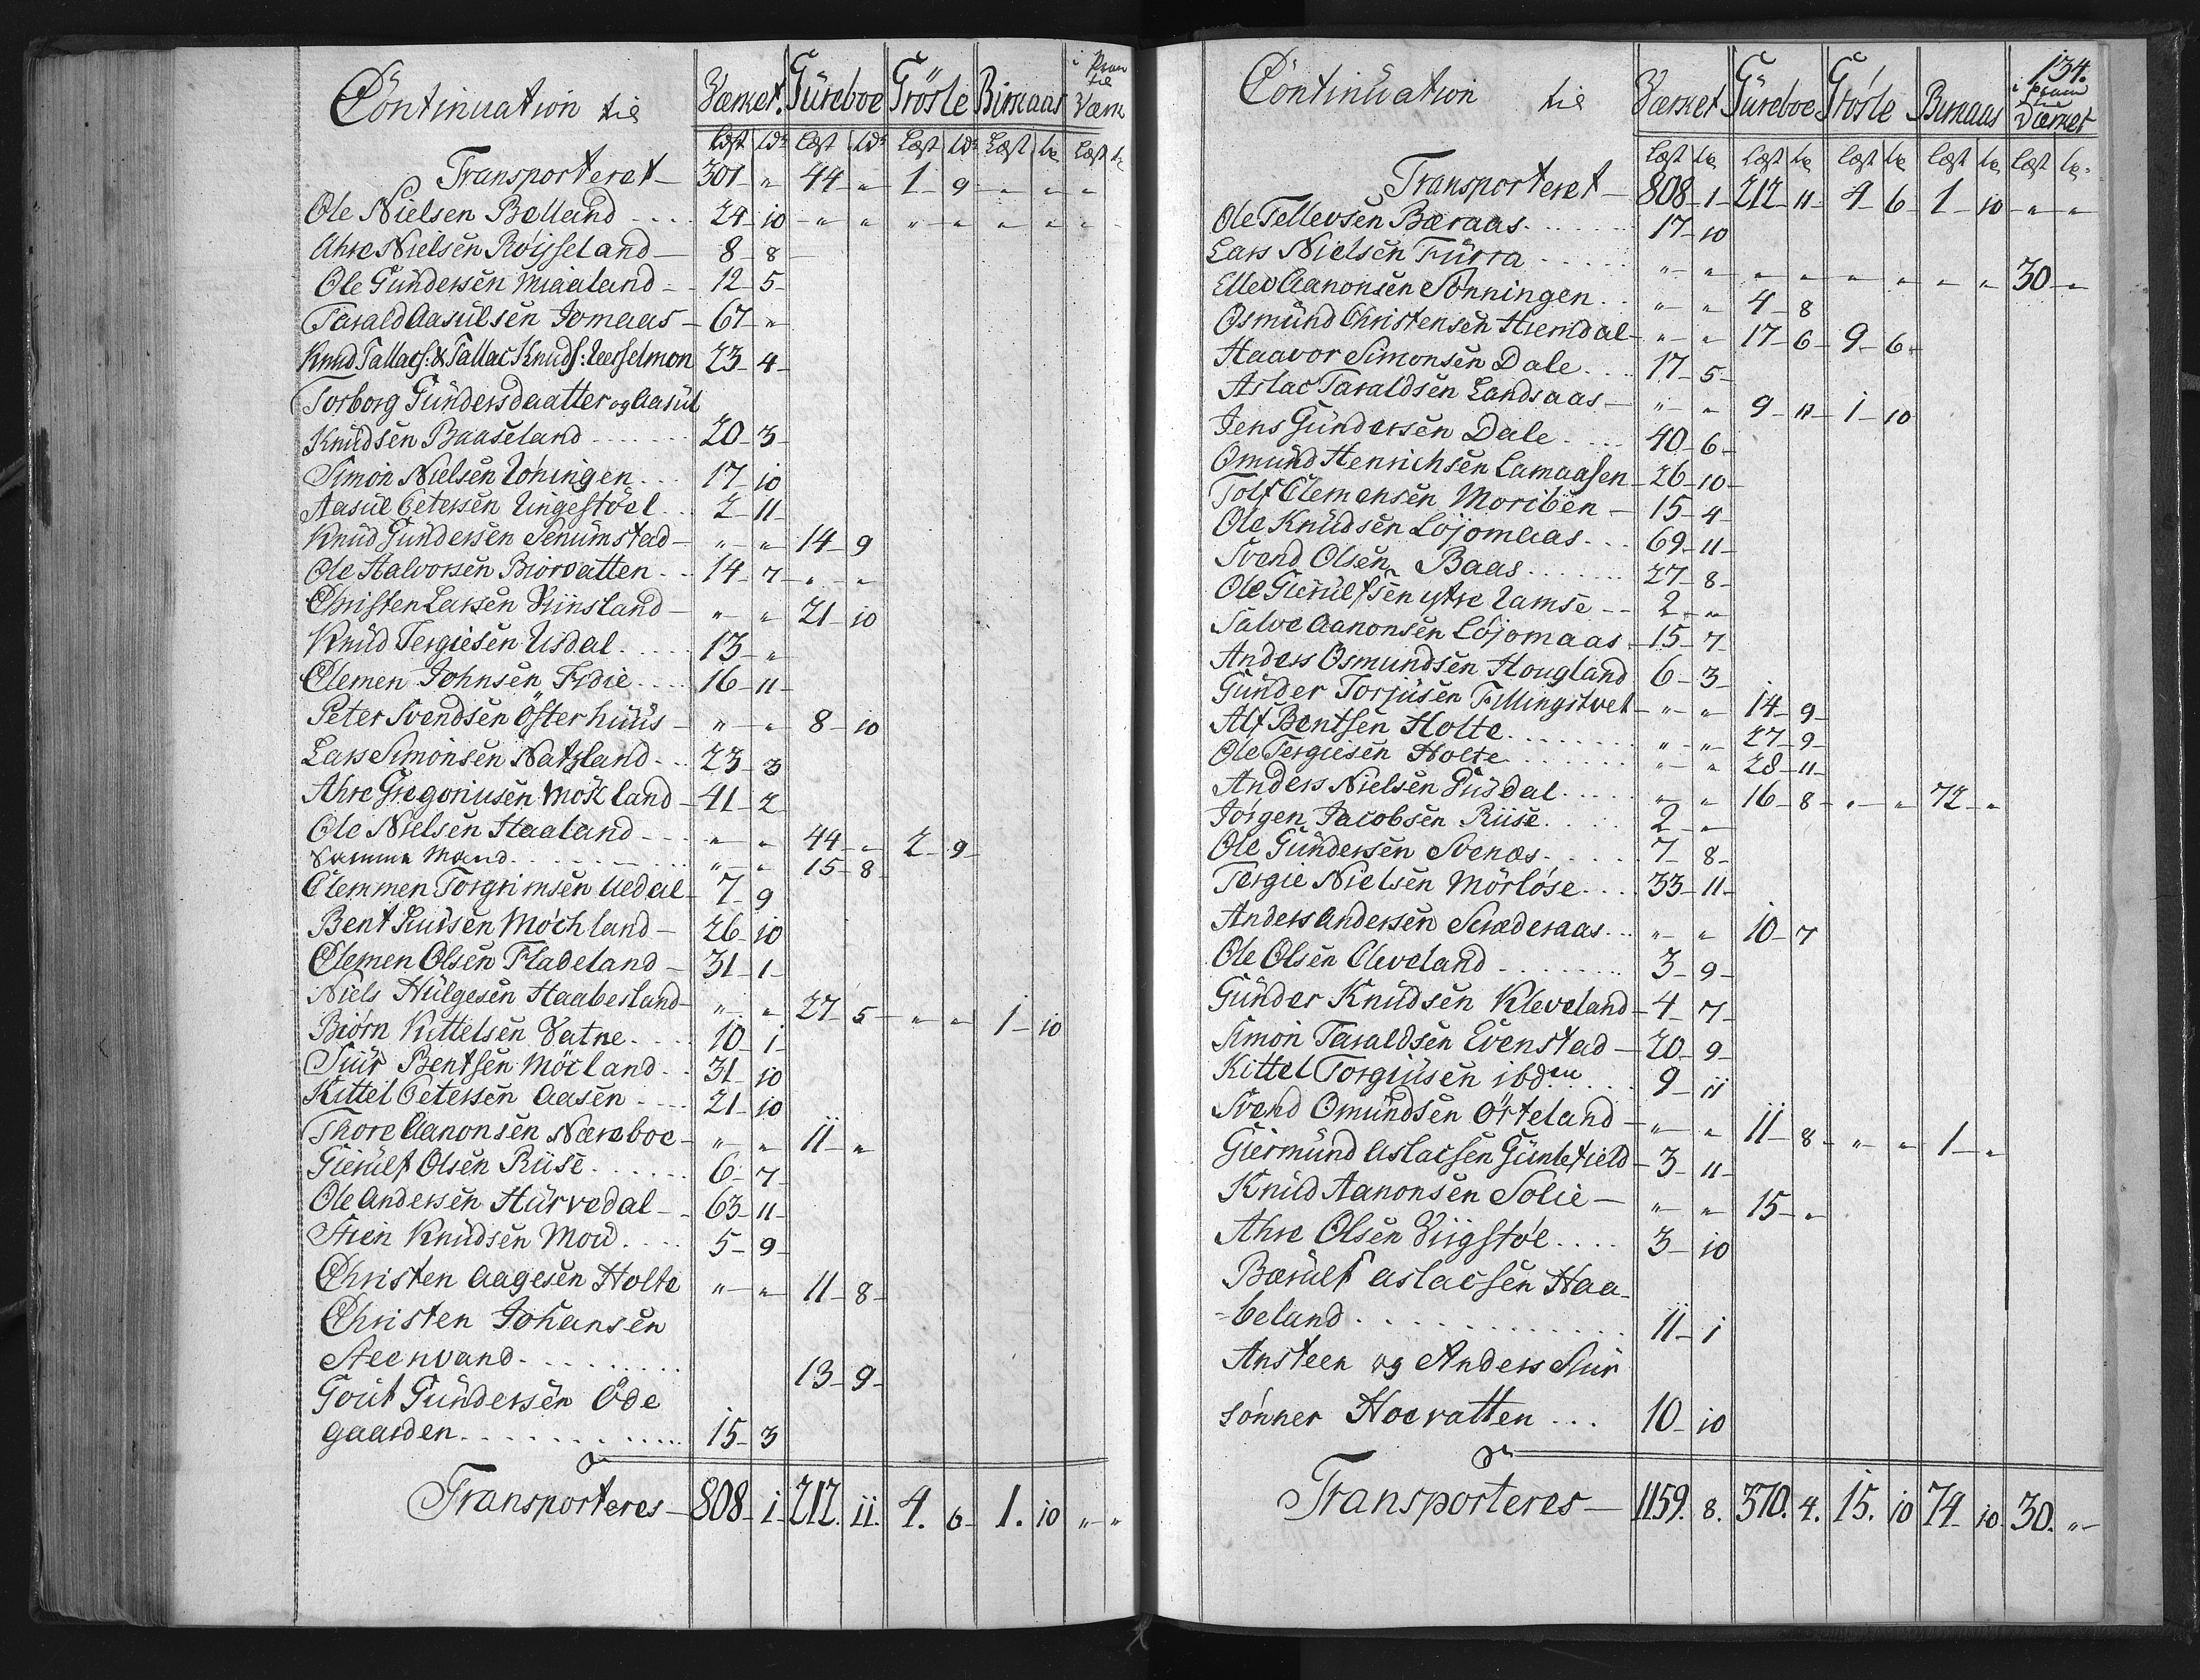 Continuation til Værket. Güreboe Trösle Birkaas i Pram til Værk
Læst Ldr Læst Ldr Læst Ldr Læst Læst
Transporteret – 301 " 44 " 1 – 9 – " " "
Ole Nielsen Belland .... 24 – 10 – " " " " " " "
Ahre Nielsen Röysseland — 8 – 8 –
Ole Gündersen Miaaland – 12 – 5 –
Tarald Aasülsen Jomaas – 67 – "
Knud Tallacs: & Tallac Knuds: Uerselmon 23 – 4 –
Torborg Gündersdaatter og Aasül
Knüdsen Baaseland ...... 20 – 3 –
Simon Nielsen Uöningen ... 17 – 10
Aasül Petersen Lingestöel .. 2 – 11 –
Knud Gündersen Senumstad – " – " 14 – 9
Ole Halvorsen Biorvatten .. 14 – 7 – " "
Christen Larsen Viinsland – " " 21 – 10
Knüd Tergiesen Usdal ..... 13 – "
Clemen Johnsen Fidie .... 16 – 11 –
Peter Svendsen Österhüüs – " – " 8 – 10
Lars Simonsen Natzland ... 23 – 3
Ahre Gregoriusen Möckland – 41 – 2
Ole Nielsen Haaland .... " " 44 – " 2 – 9 –
Samme Mand ........ " – " 15 – 8
Clemmen Torgrimsen Uedal – 7 – 9
Bent Siursen Möchland – 26 – 10
Clemen Olsen Fladeland – 31 – 1 –
Niels Hülgesen Haabesland – " " 27 – 5 – " – " 1 – 10
Biörn Kittelsen Vatne .... 10 – 1 –
Siür Bentsen Möcland .. 31 – 10
Kittel Petersen Aasen .... 21 – 10
Thore Aanonsen Næreboe – " – " 11 – "
Gierülf Olsen Riise ...... 6 – 7 –
Ole Andersen Hürvedal – 63 – 11 –
Stien Knüdsen Mou ..... 5 – 9 –
Christen Aagesen Holte " – " 11 – 8 –
Christen Johansen
Steenvand ......... 13 – 9 –
Gout Gündersen Öde
gaarden ........... 15 – 3
Transporteres – 808 – 1 – 212. 11. 4. 6 – 1. 10 " – "
134.
Continuation til Værket Güreboe Trösle Birkaas i Pram til Værket
Læst Læst Læst Læst Læst
Transporteret – 808 – 1 – 212 – 11 – 4 – 6 – 1 – 10 – " – "
Ole Tellevsen Bæraas ...... 17 – 10
Lars Nielsen Fürra ..... " – " – " – " – " – " – " – " 30 – "
Ellev Aanonsen Sönningen .. " – " 4 – 8
Osmünd Christensen Hiemdal – " – " 17 – 6 – 9 – 6 –
Haavor Simonsen Dale ... 17 – 5 –
Aslac Taraldsen Landsaas – " – " 9 – 11 – 1 – 10
Jens Gündersen Dale .... 40 – 6 –
Omünd Henrichsen Lamaasen – 26 – 10 –
Tolf Clemensen Moriben – 15 – 4 –
Ole Knüdsen Löjomaas ... 69 – 11 –
Svend Olsen Baas ...... 27 – 8 –
Ole Gierülfsen ytre Ramse – – 2 – "
Salve Aanonsen Löjomaas – 15 – 7 –
Anders Osmundsen Hougland 6 – 3 –
Günder Torjüsen Fillingstvet – " – " 14 – 9 –
Alf Bentsen Holte ........ " – " 27 – 9 –
Ole Tergiesen Holte ....... " – " 28 – 11 –
Anders Nielsen Düsdal .... " – " 16 – 8 – " – " 72 – "
Jörgen Jacobsen Riise .... 2 – "
Ole Gündersen Svenæs ..... 7 – 8 –
Tergie Nielsen Mörlöse ... 33 – 11 –
Anders Andersen Scræderaas .. " – " 10 – 7
Ole Olsen Cleveland ....... 3 – 9 –
Günder Knüdsen Kleveland – 4 – 7 –
Simon Taraldsen Evenstad – 20 – 9 –
Kittel Torgiüsen ibdem .... 9 – 11
Svend Omündsen Örteland – " – " 11 – 8 – " – " 1 – "
Giermünd Aslacsen Güntefield – 3 – 11 –
Knüd Aanonsen Solie – " – " 15 – "
Ahre Olsen Viigstöl .... 3 – 10
Bærülf Aslacsen Haa-
-beland ............ 11 – 1
Ansteen og Anders Siür
sönner Hoevatten ... 10 – 10
Transporteres – 1159. 8. 370. 4. 15. 10 74 – 10 30. " –